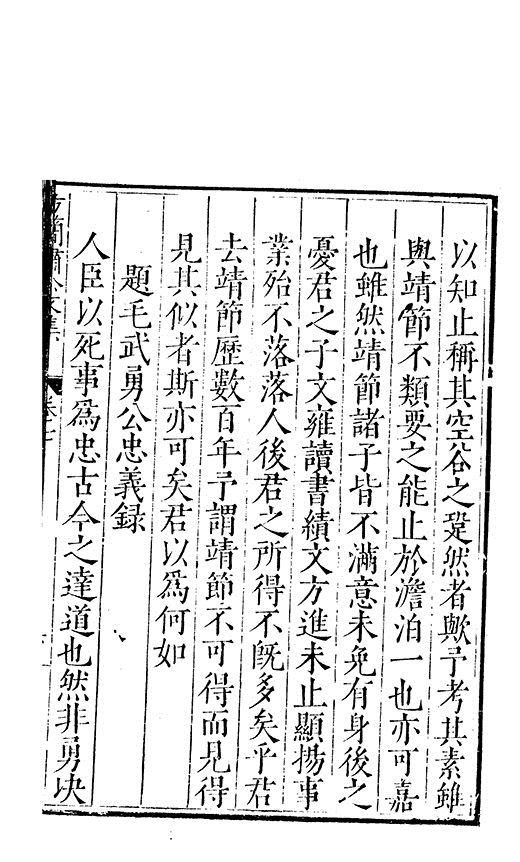 以知止稱其空谷之跫然者歟予考其素雖
與靖節不類要之能止於澹泊一也亦可嘉
也雖然靖節諸子皆不滿意未免有身後之
憂君之子文雍讀書績文方進未止顯揚事
業殆不落落人後君之所得不旣多矣乎君
去靖節歷數百年予謂靖節不可得而見得
見其似者斯亦可矣君以爲何如
題毛武勇公忠義録
人臣以死事爲忠古今之達道也然非勇决
簡肅公文集
卷之七